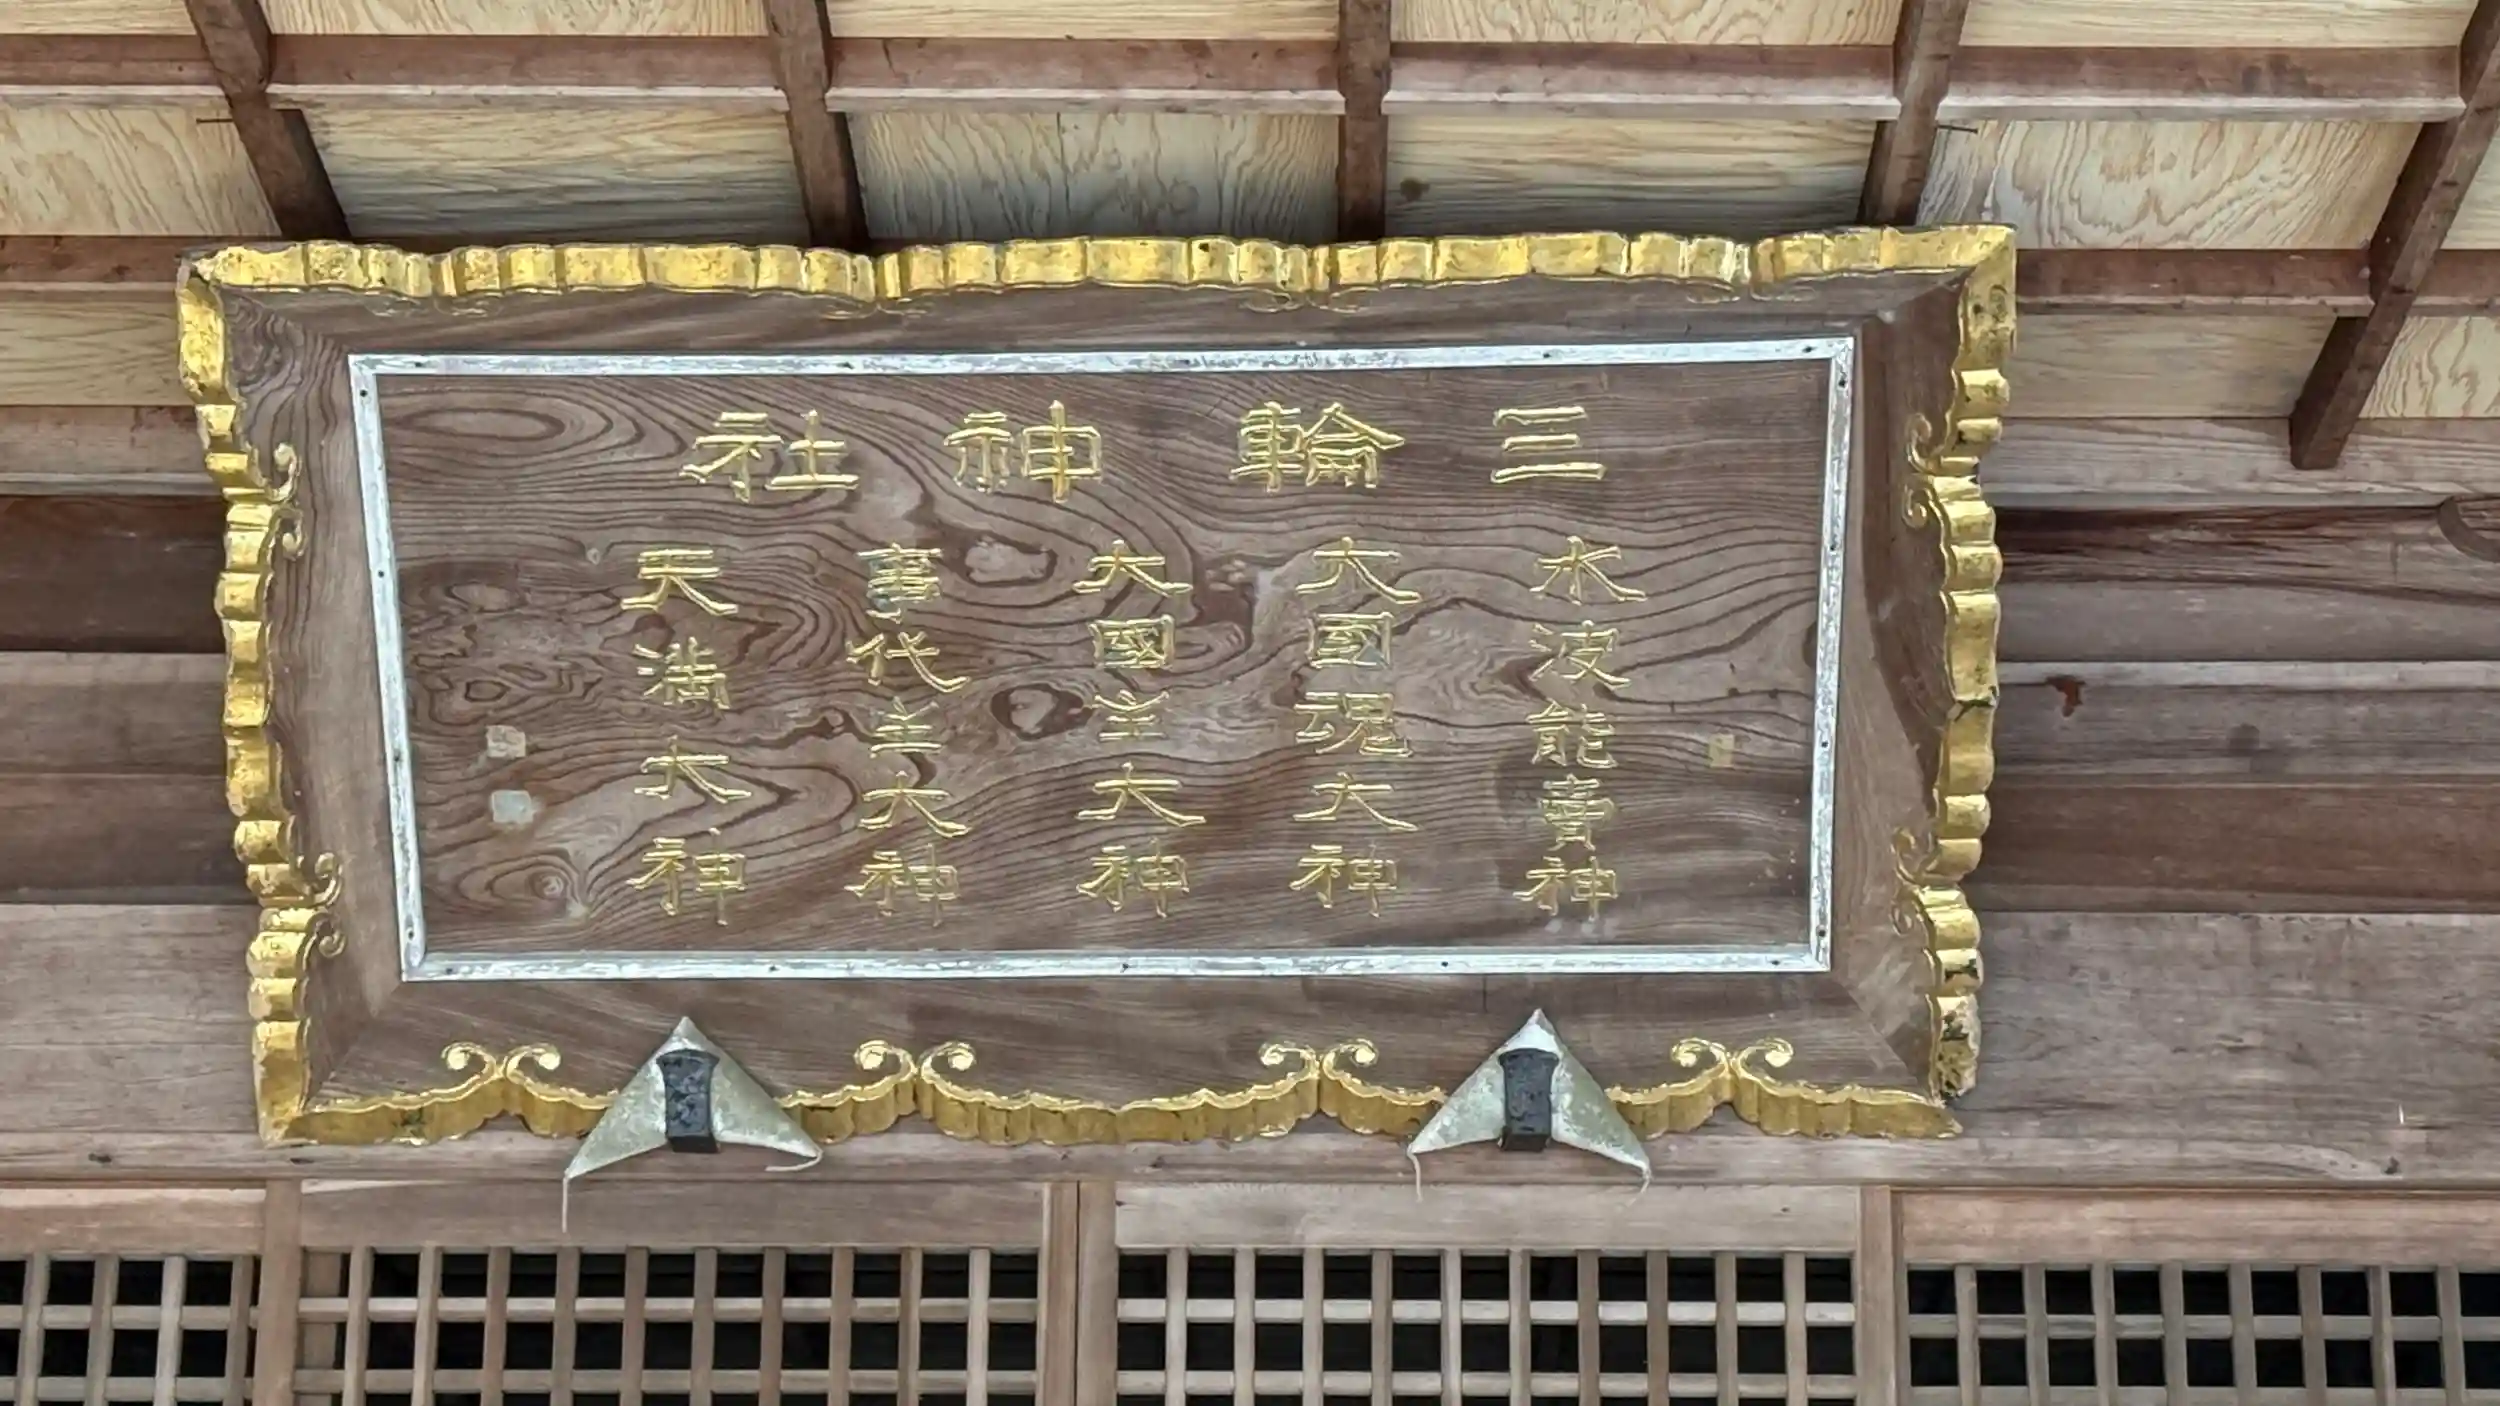 三輪神社
水波能賣神
大國魂大神
大國主大神
事代主大神
天満大神